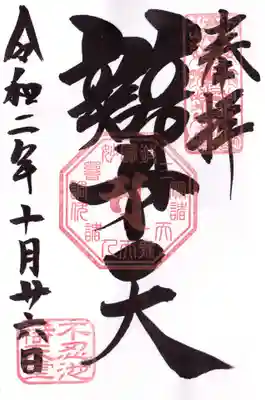 奉拝
辯才天
令和二年十月廿六日
不忍池
辯天堂